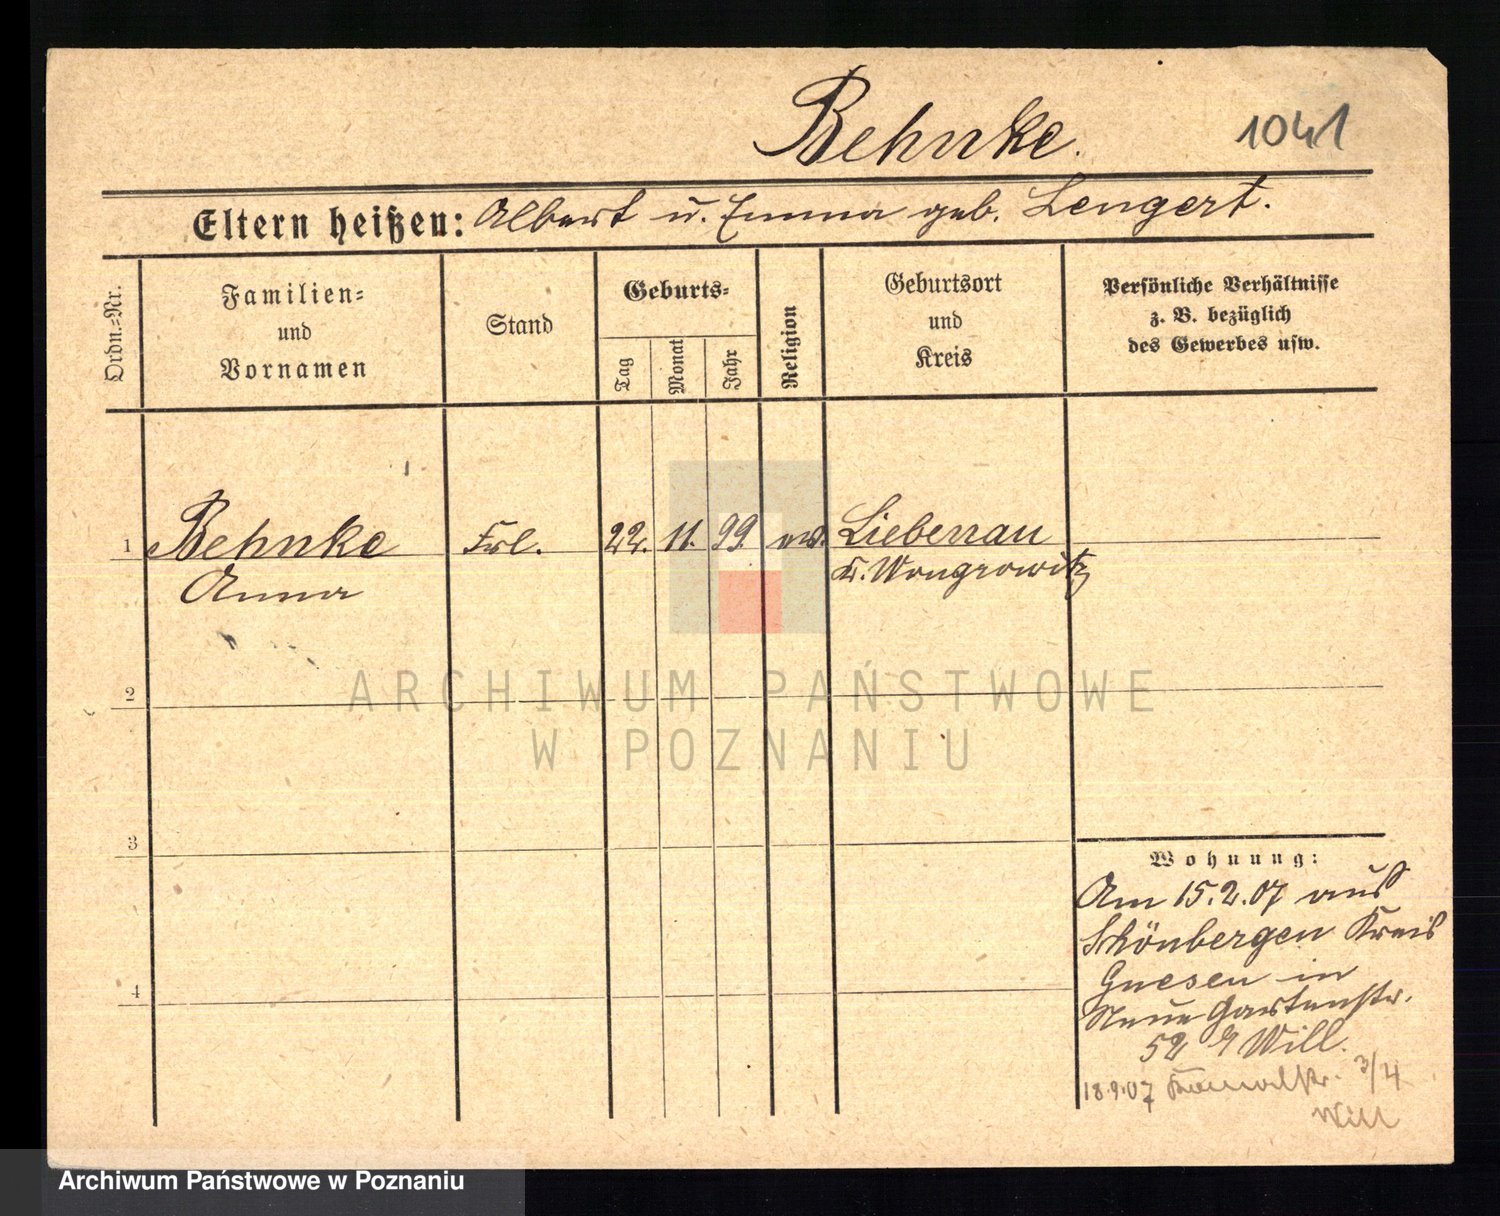 Behnke.
1041
Eltern heißen: Albert u. Emma geb. Lengert.
Ordn.-Nr.
Familien-
und
Vornamen
Stand
Geburts-
Tag
Monat
Jahr
Religion
Geburtsort
und
Kreis
Persönliche Verhältnisse
z. B. bezüglich
des Gewerbes usw.
1 Behnke Frl. 22. 11. 99. ev. Liebenau
Anna K. Wongrowitz
2
3
4
Wohnung:
Am 15.2.07 aus
Schönbergen Kreis
Gnesen in
Neue Gartenstr.
52 Will.
18.9.07 Kanalstr. 3/4
Will
ARCHIWUM PAŃSTWOWE
W POZNANIU
Archiwum Państwowe w Poznaniu